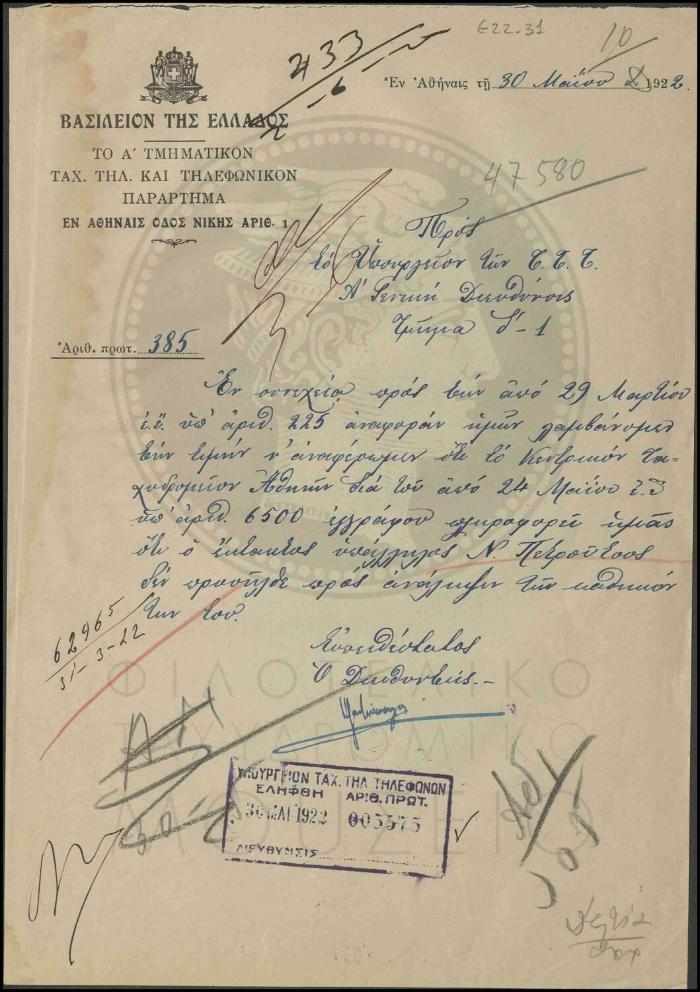 Ε22.31
10
433
Ἐν Ἀθήναις τῇ 30 Μαΐου 1922.
ΒΑΣΙΛΕΙΟΝ ΤΗΣ ΕΛΛΑΔΟΣ
ΤΟ Α΄ ΤΜΗΜΑΤΙΚΟΝ
ΤΑΧ. ΤΗΛ. ΚΑΙ ΤΗΛΕΦΩΝΙΚΟΝ
ΠΑΡΑΡΤΗΜΑ
ΕΝ ΑΘΗΝΑΙΣ ΟΔΟΣ ΝΙΚΗΣ ΑΡΙΘ. 1
47580
Πρός
τό Ὑπουργεῖον τῶν Τ. Τ. Τ.
Α΄ Γενική Διεύθυνσις
Τμῆμα δ΄-1
Ἀριθ. πρωτ. 385
Ἐν συνεχείᾳ πρός τήν ἀπό 29 Μαρτίου
ἐ.ἔ. ὑπ' ἀριθ. 225 ἀναφοράν ἡμῶν λαμβάνομεν
τήν τιμήν ν' ἀναφέρωμεν ὅτι τό Κεντρικόν Τα-
χυδρομεῖον Ἀθηνῶν διά τοῦ ἀπό 24 Μαΐου ἐ.ἔ
ὑπ' ἀριθ. 6500 ἐγγράφου πληροφορεῖ ἡμᾶς
ὅτι ὁ ἔκτακτος ὑπάλληλος Ν. Πετροῦτσος
δέν προσῆλθε πρός ἀνάληψιν τῶν καθηκόν
των του.
62965
31-3-22
Εὐπειθέστατος
Ὁ Διευθυντής.-
ΦΙΛΟΤΕΛΙΚΟ
ΤΑΧΥΔΡΟΜΙΚΟ
ΜΟΥΣΕΙΟ
ΥΠΟΥΡΓΕΙΟΝ ΤΑΧ. ΤΗΛ ΤΗΛΕΦΩΝΩΝ
ΕΛΗΦΘΗ ΑΡΙΘ. ΠΡΩΤ.
30 ΜΑΪ 1922 005575
ΔΙΕΥΘΥΝΣΙΣ